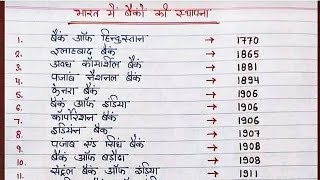 भारत में बैंकों की स्थापना
1. बैंक ऑफ हिन्दुस्तान → 1770
2. इलाहबाद बैंक → 1865
3. अवध कॉमर्शियल बैंक → 1881
4. पंजाब नैशनल बैंक → 1894
5. केनरा बैंक → 1906
6. बैंक ऑफ इंडिया → 1906
7. कॉर्पोरेशन बैंक → 1906
8. इंडियन बैंक → 1907
9. पंजाब एंड सिंध बैंक → 1908
10. बैंक ऑफ बड़ौदा → 1908
11. सेंट्रल बैंक ऑफ इंडिया → 1911